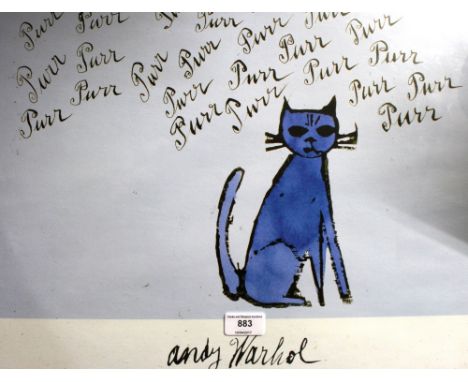 Purr Purr Purr Purr Purr
Purr Purr Purr Purr Purr Purr
Purr Purr Purr Purr Purr Purr Purr
Purr Purr Purr Purr Purr
883
andy Warhol